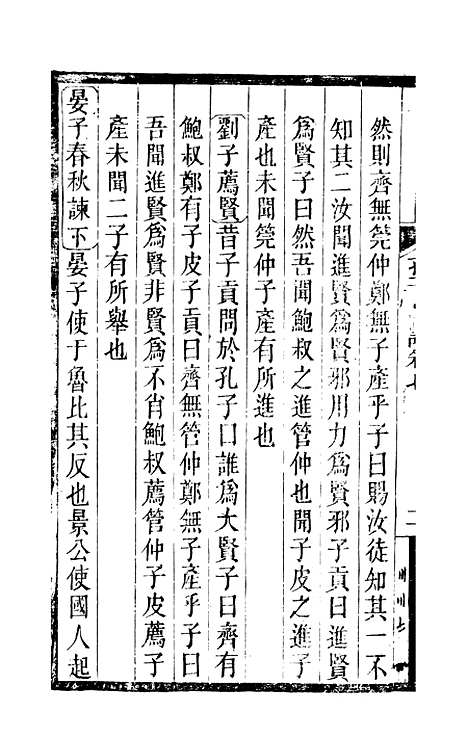 然則齊無筦仲鄭無子產乎子曰賜汝徒知其一不
知其二汝聞進賢爲賢邪用力爲賢邪子貢曰進賢
爲賢子曰然吾聞鮑叔之進管仲也聞子皮之進子
產也未聞筦仲子產有所進也
劉子薦賢昔子貢問於孔子曰誰爲大賢子曰齊有
鮑叔鄭有子皮子貢曰齊無管仲鄭無子產乎子曰
吾聞進賢爲賢非賢爲不肖鮑叔薦管仲子皮薦子
產未聞二子有所舉也
晏子春秋諫下晏子使于魯比其反也景公使國人起